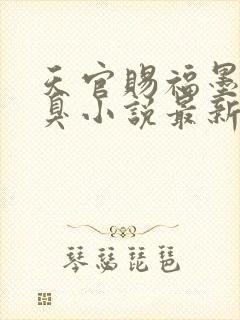 天官赐福墨
臭小说最新
琴瑟琵琶